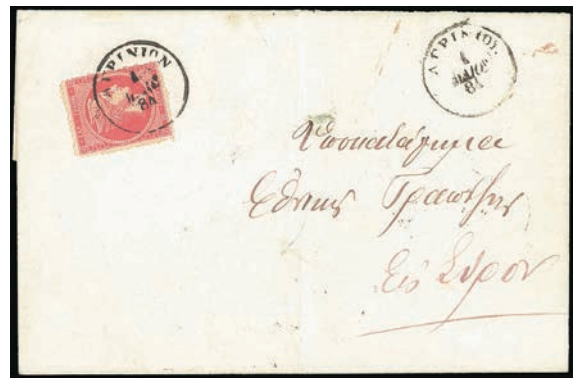 ΑΓΡΙΝΙΟΝ
4
ΜΑΙΟΣ
84
ΑΓΡΙΝΙΟΝ
4
ΜΑΙΟΣ
84
Υποκατάστημα
Εθνικής Τραπέζης
Εις Σύρον